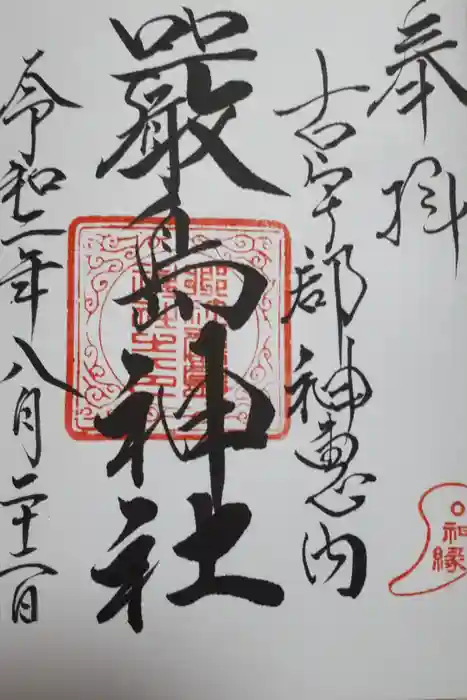 奉拝
古宇郡神恵内
嚴島神社
令和二年八月二十二日
和縁